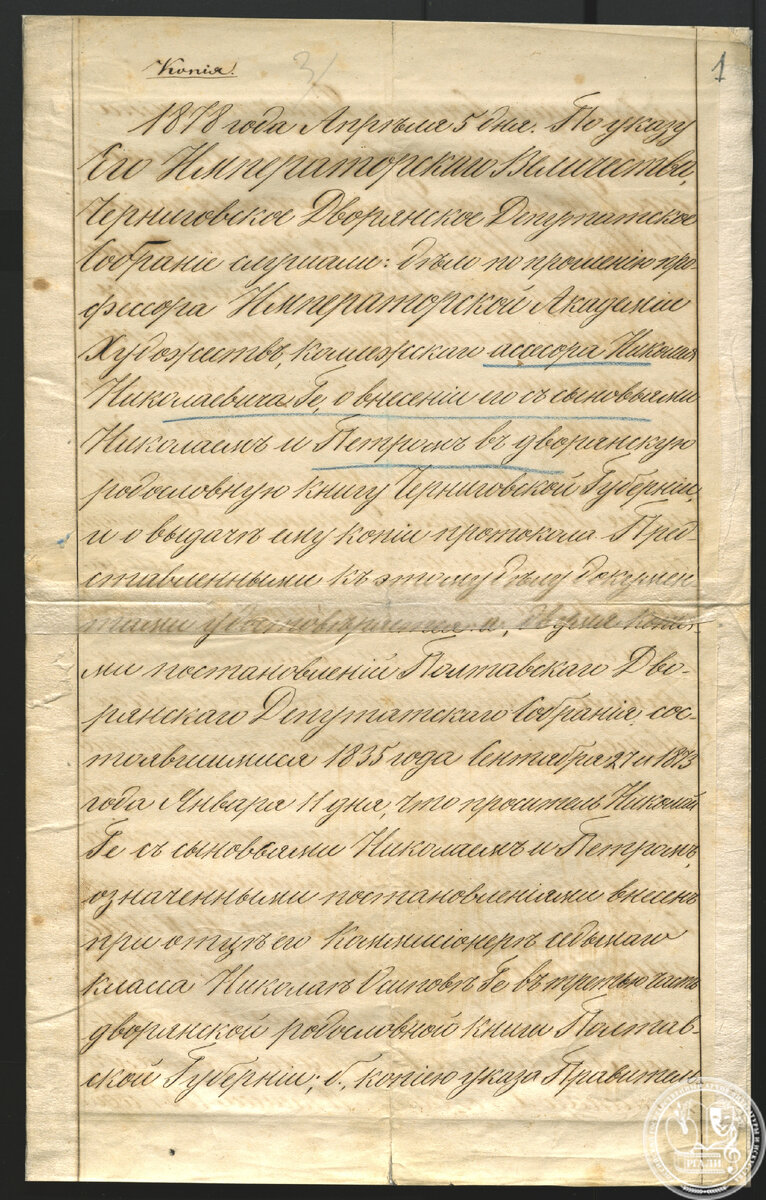 Копія!
1
1878 года Апрѣля 5 дня. По указу
Его Императорскаго Величества,
Черниговское Дворянское Депутатское
Собраніе слушали: дѣло по прошенію про-
фессора Императорской Академіи
Художествъ, коллежскаго ассесора Николая
Николаевича Ге, о внесеніи его съ сыновьями
Николаемъ и Петромъ въ дворянскую
родословную книгу Черниговской Губерніи,
и о выдачѣ ему копіи протокола. Пред
ставленными къ этому дѣлу докумен
тами удостовѣряется: а, двумя копія-
ми постановленій Полтавскаго Дво-
рянскаго Депутатскаго Собранія, сос-
тоявшимися 1835 года Сентября 27 и 1873
года Января 11 дня, что проситель Николай
Ге съ сыновьями Николаемъ и Петромъ,
означенными постановленіями внесенъ
при отцѣ его Коммисіонерѣ седьмаго
класса Николаѣ Осиповѣ Ге въ третью часть
дворянской родословной книги Полтав-
ской Губерніи; б, копіею указа Правитель
РГАЛИ